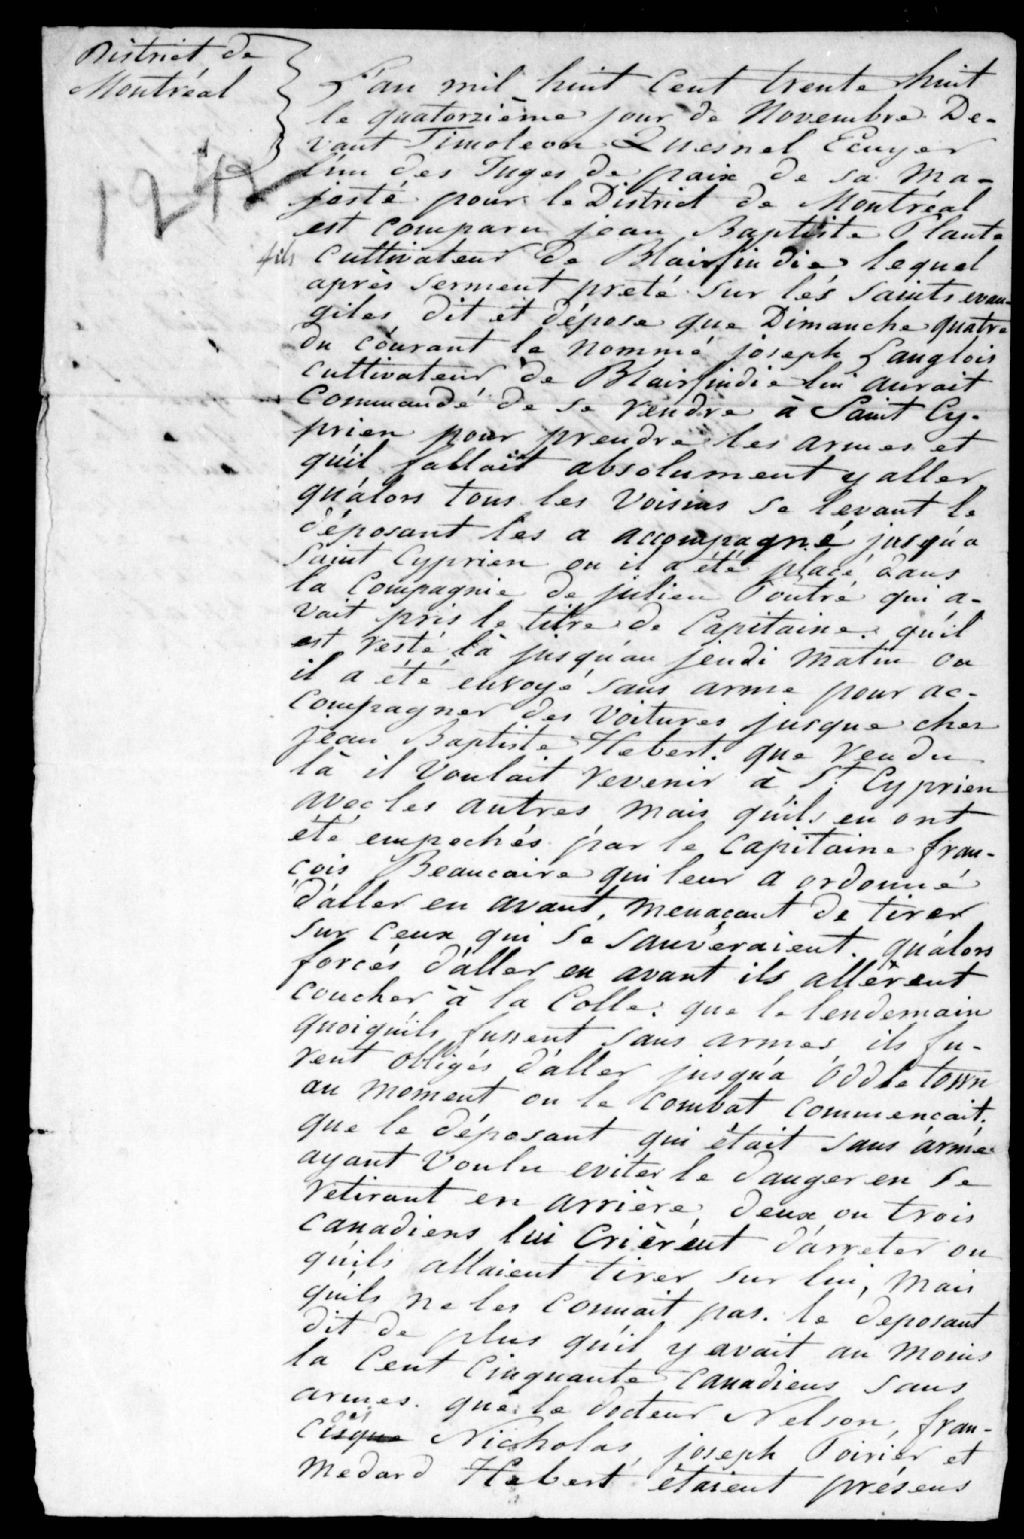 District de
Montréal
1242
L'an mil huit Cent trente huit
le quatorzième jour de Novembre De-
vant Timoleon Quesnel Ecuyer
l'un des Juges de paix de sa Ma-
jesté pour le District de Montréal
est comparu jean Baptiste Plante
fils cultivateur de Blairfindie lequel
après serment preté sur lés saints evan-
giles dit et dépose que Dimanche quatre
du courant le nommé joseph Langlois
cultivateur de Blairfindie lui aurait
commandé de se rendre à Saint Cy-
prien pour prendre les armes et
qu'il fallait absolument y aller
qu'alors tous les voisins se levant le
déposant les a accompagné jusqu'a
Saint Cyprien ou il a été placé dans
la Compagnie de julien Poutré qui a-
vait pris le titre de Capitaine. qu'il
est resté là jusqu'au jeudi matin ou
il a été envoyé sans arme pour ac-
compagner des voitures jusque chez
jean Baptiste Hebert. que rendu
là il voulait revenir à St Cyprien
avec les autres mais qu'ils en ont
été empechés par le capitaine fran-
çois Beaucaire qui leur a ordonné
d'aller en avant, menaçant de tirer
sur ceux qui se sauveraient. qu'alors
forcés d'aller en avant ils allèrent
coucher à la Colle. que le lendemain
quoiqu'ils fussent sans armes ils fu-
rent obligés d'aller jusqu'a Oddletown
au moment ou le combat commencait.
que le déposant qui était sans arme
ayant voulu eviter le danger en se
retirant en arrière deux ou trois
canadiens lui crièrent d'arreter ou
qu'ils allaient tirer sur lui, mais
qu'ils ne les connait pas. le deposant
dit de plus qu'il y avait au moins
la Cent Cinquante canadiens sans
armes. que le docteur Nelson, fran-
çois Nicholas, joseph Poirier et
Medard Hebert étaient présens